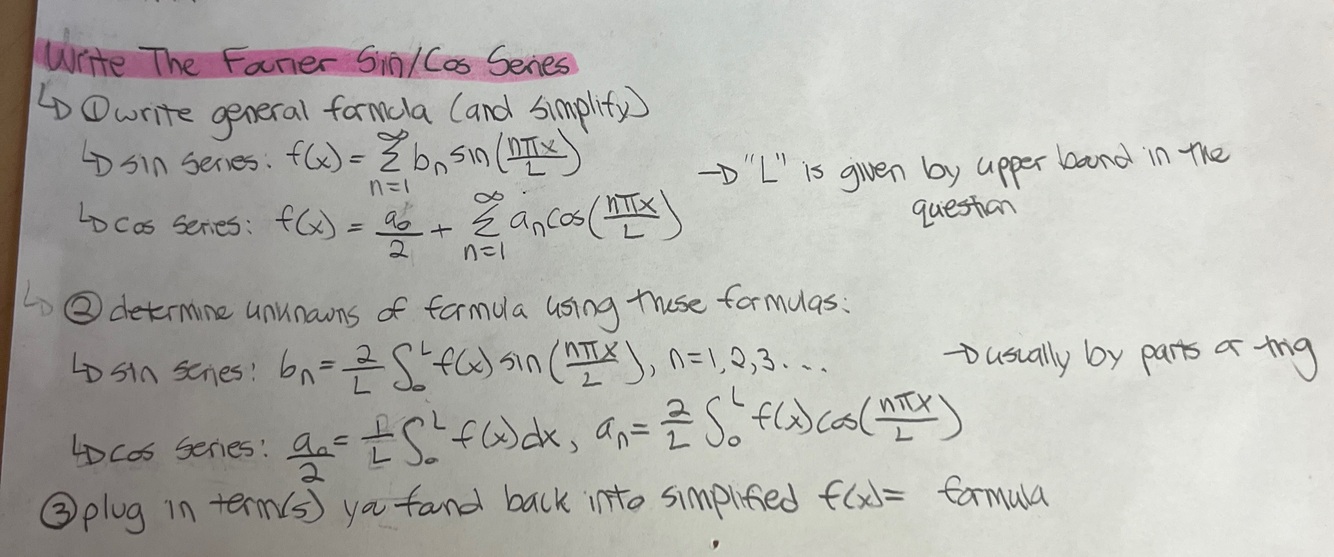 Write The Fourier Sin/Cos Series
↳ ① write general formula (and simplify)
↳ sin series: f(x) = ∑_{n=1}^{∞} bₙ sin(nπx/L)
→ "L" is given by upper bound in the question
↳ cos series: f(x) = a₀/2 + ∑_{n=1}^{∞} aₙ cos(nπx/L)
↳ ② determine unknowns of formula using these formulas:
↳ sin series: bₙ = 2/L ∫₀ᴸ f(x) sin(nπx/L), n=1,2,3... → usually by parts or trig
↳ cos series: a₀/2 = 1/L ∫₀ᴸ f(x)dx, aₙ = 2/L ∫₀ᴸ f(x) cos(nπx/L)
③ plug in term(s) you found back into simplified f(x)= formula